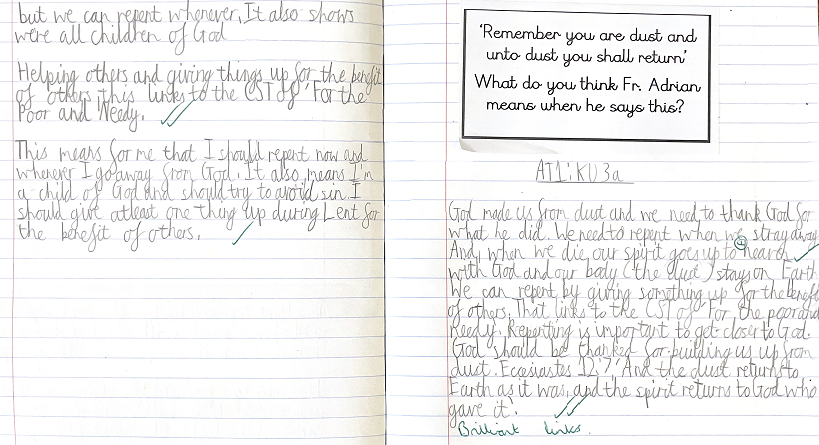 but we can repent whenever. It also shows
were all children of God
Helping others and giving things up for the benefit
of others this links to the CST of 'For the
Poor and Needy.
This means for me that I should repent now and
whenever I go away from God. It also means I'm
a child of God and should try to avoid sin. I
should give atleast one thing up during Lent for
the benefit of others.
'Remember you are dust and
unto dust you shall return'
What do you think Fr. Adrian
means when he says this?
AT1:KU3a
God made us from dust and we need to thank God for
what he did. We need to repent when we stray away
And, when we die our spirit goes up to heard
with God and our body (the dust) stays on Earth
We can repent by giving something up for the benefit
of others. That links to the CST of 'For the poor and
Needy. Repenting is important to get closer to God.
God should be thanked for building us up from
dust. Ecclesiastes 12:7 'And the dust returns to
Earth as it was, and the spirit returns to God who
gave it'.
Brilliant links.